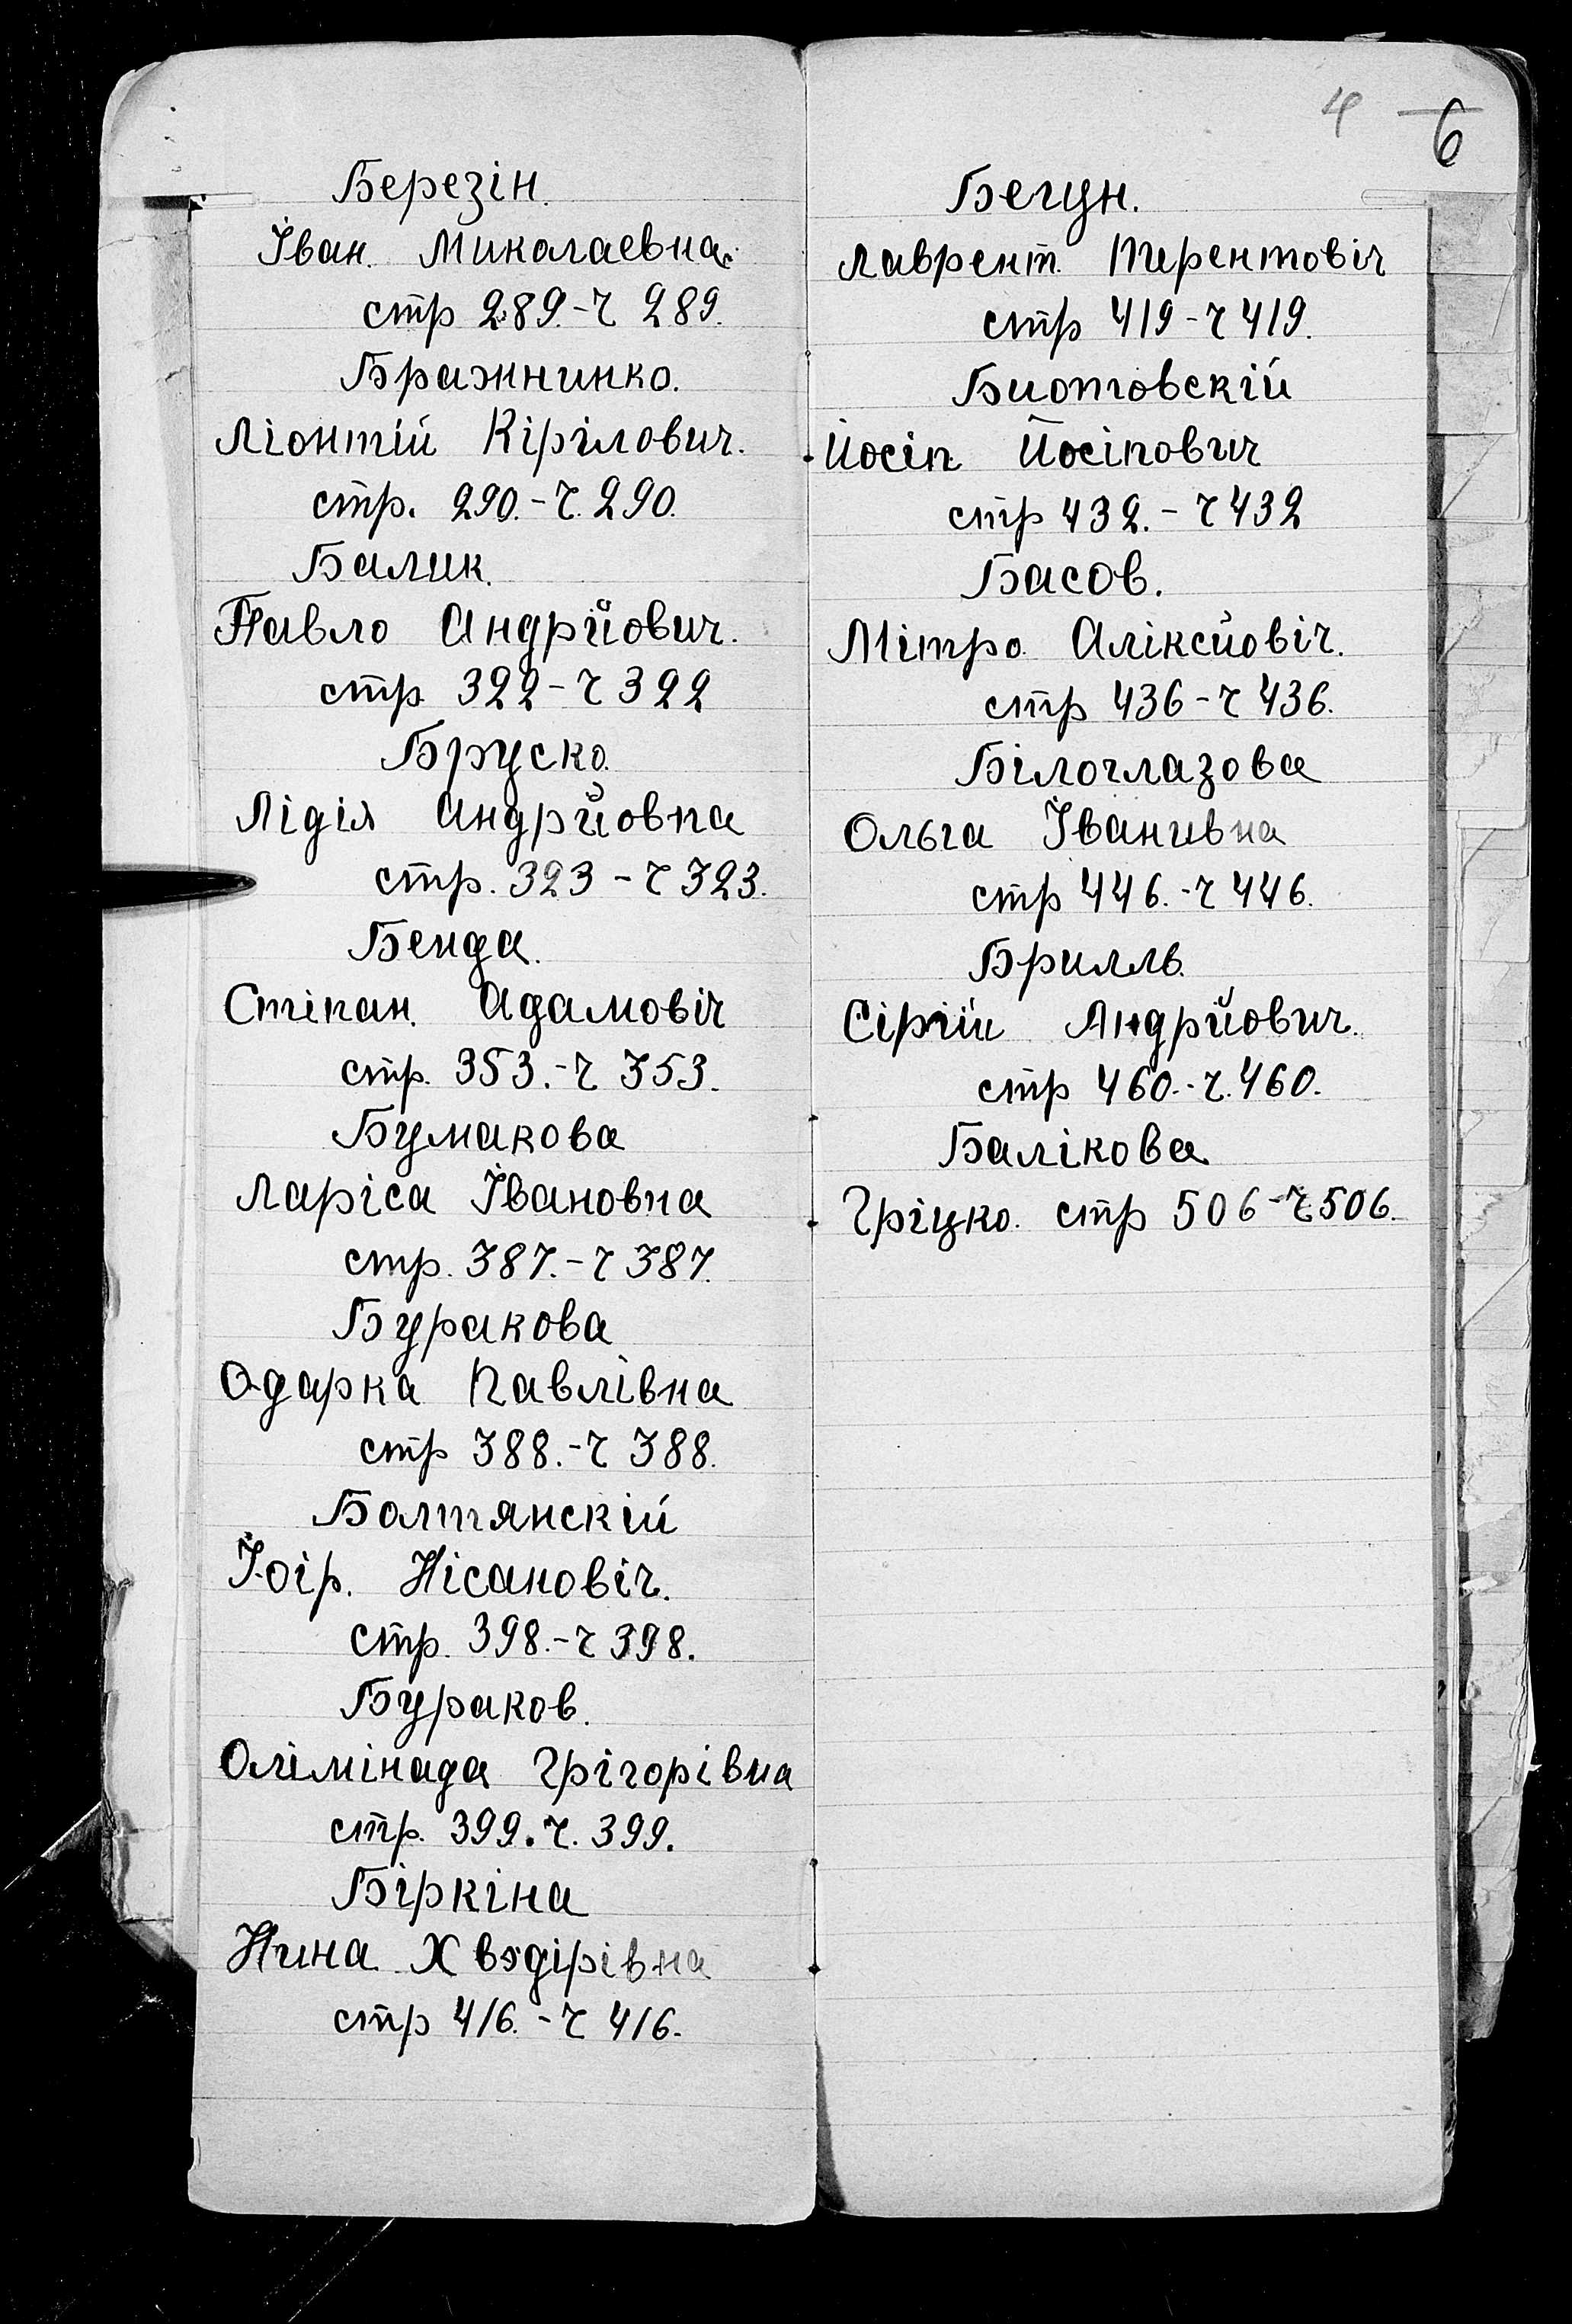 Березін.
Іван. Миколаевна.
стр 289.-ч 289.
Бражнинко.
Ліонтій Кірілович.
стр. 290.-ч.290.
Балик.
Павло Андрійович.
стр 322-ч 322
Бруско.
Лідія Андрійовна
стр. 323-ч 323.
Бенда.
Стіпан. Адамовіч
стр. 353.-ч 353.
Бумакова
Ларіса Івановна
стр. 387.-ч 387.
Буракова
Одарка Павлівна
стр 388.-ч 388.
Болтянскій
Іоір. Нісановіч.
стр. 398.-ч 398.
Бураков.
Олімінада Грігорівна
стр. 399.ч. 399.
Біркіна
Нина Хвэдірівна
стр 416.-ч 416.
4 6
Бегун.
Лаврент. Терентовіч
стр 419-ч 419.
Биотовскій
Йосіп Йосіпович
стр 432.-ч 432
Басов.
Мітро. Аліксйовіч.
стр 436-ч 436.
Білоглазова
Ольга Іванивна
стр 446.-ч 446.
Брилль.
Сіргій Андрійович.
стр 460.-ч.460.
Балікова
Гріцко. стр 506-ч.506.